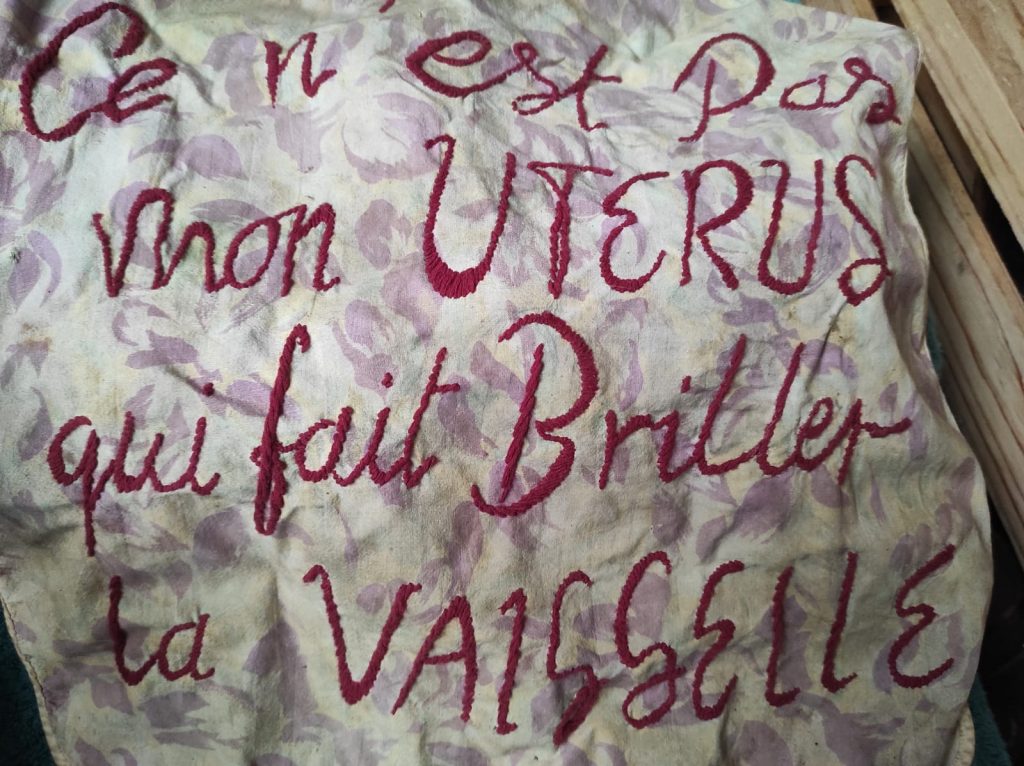 Ce n'est Pas
mon UTERUS
qui fait Briller
la VAISSELLE